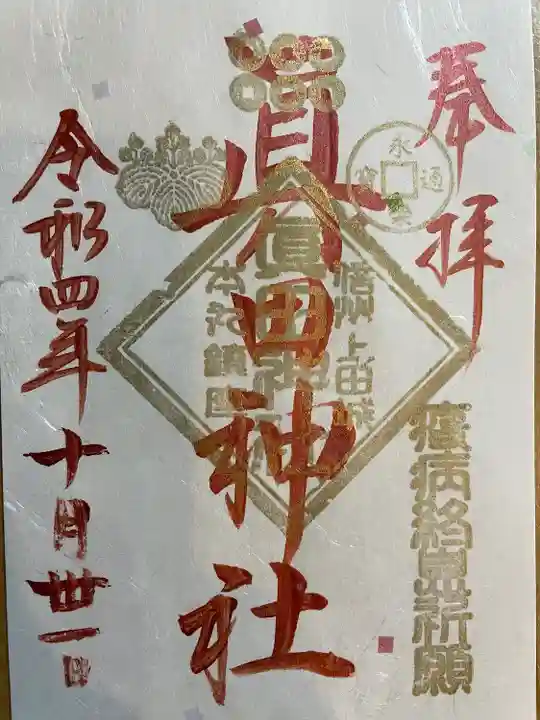 奉拝
疫病終息祈願
永
通
寳
樂
信州上田城
眞田神社
本丸鎮座
眞田神社
令和四年十月卅一日